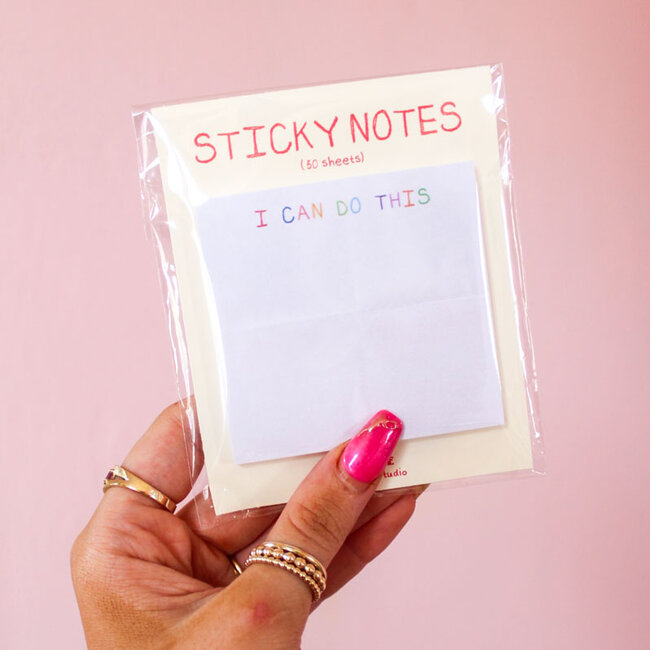 STICKY NOTES
(50 sheets)
I CAN DO THIS